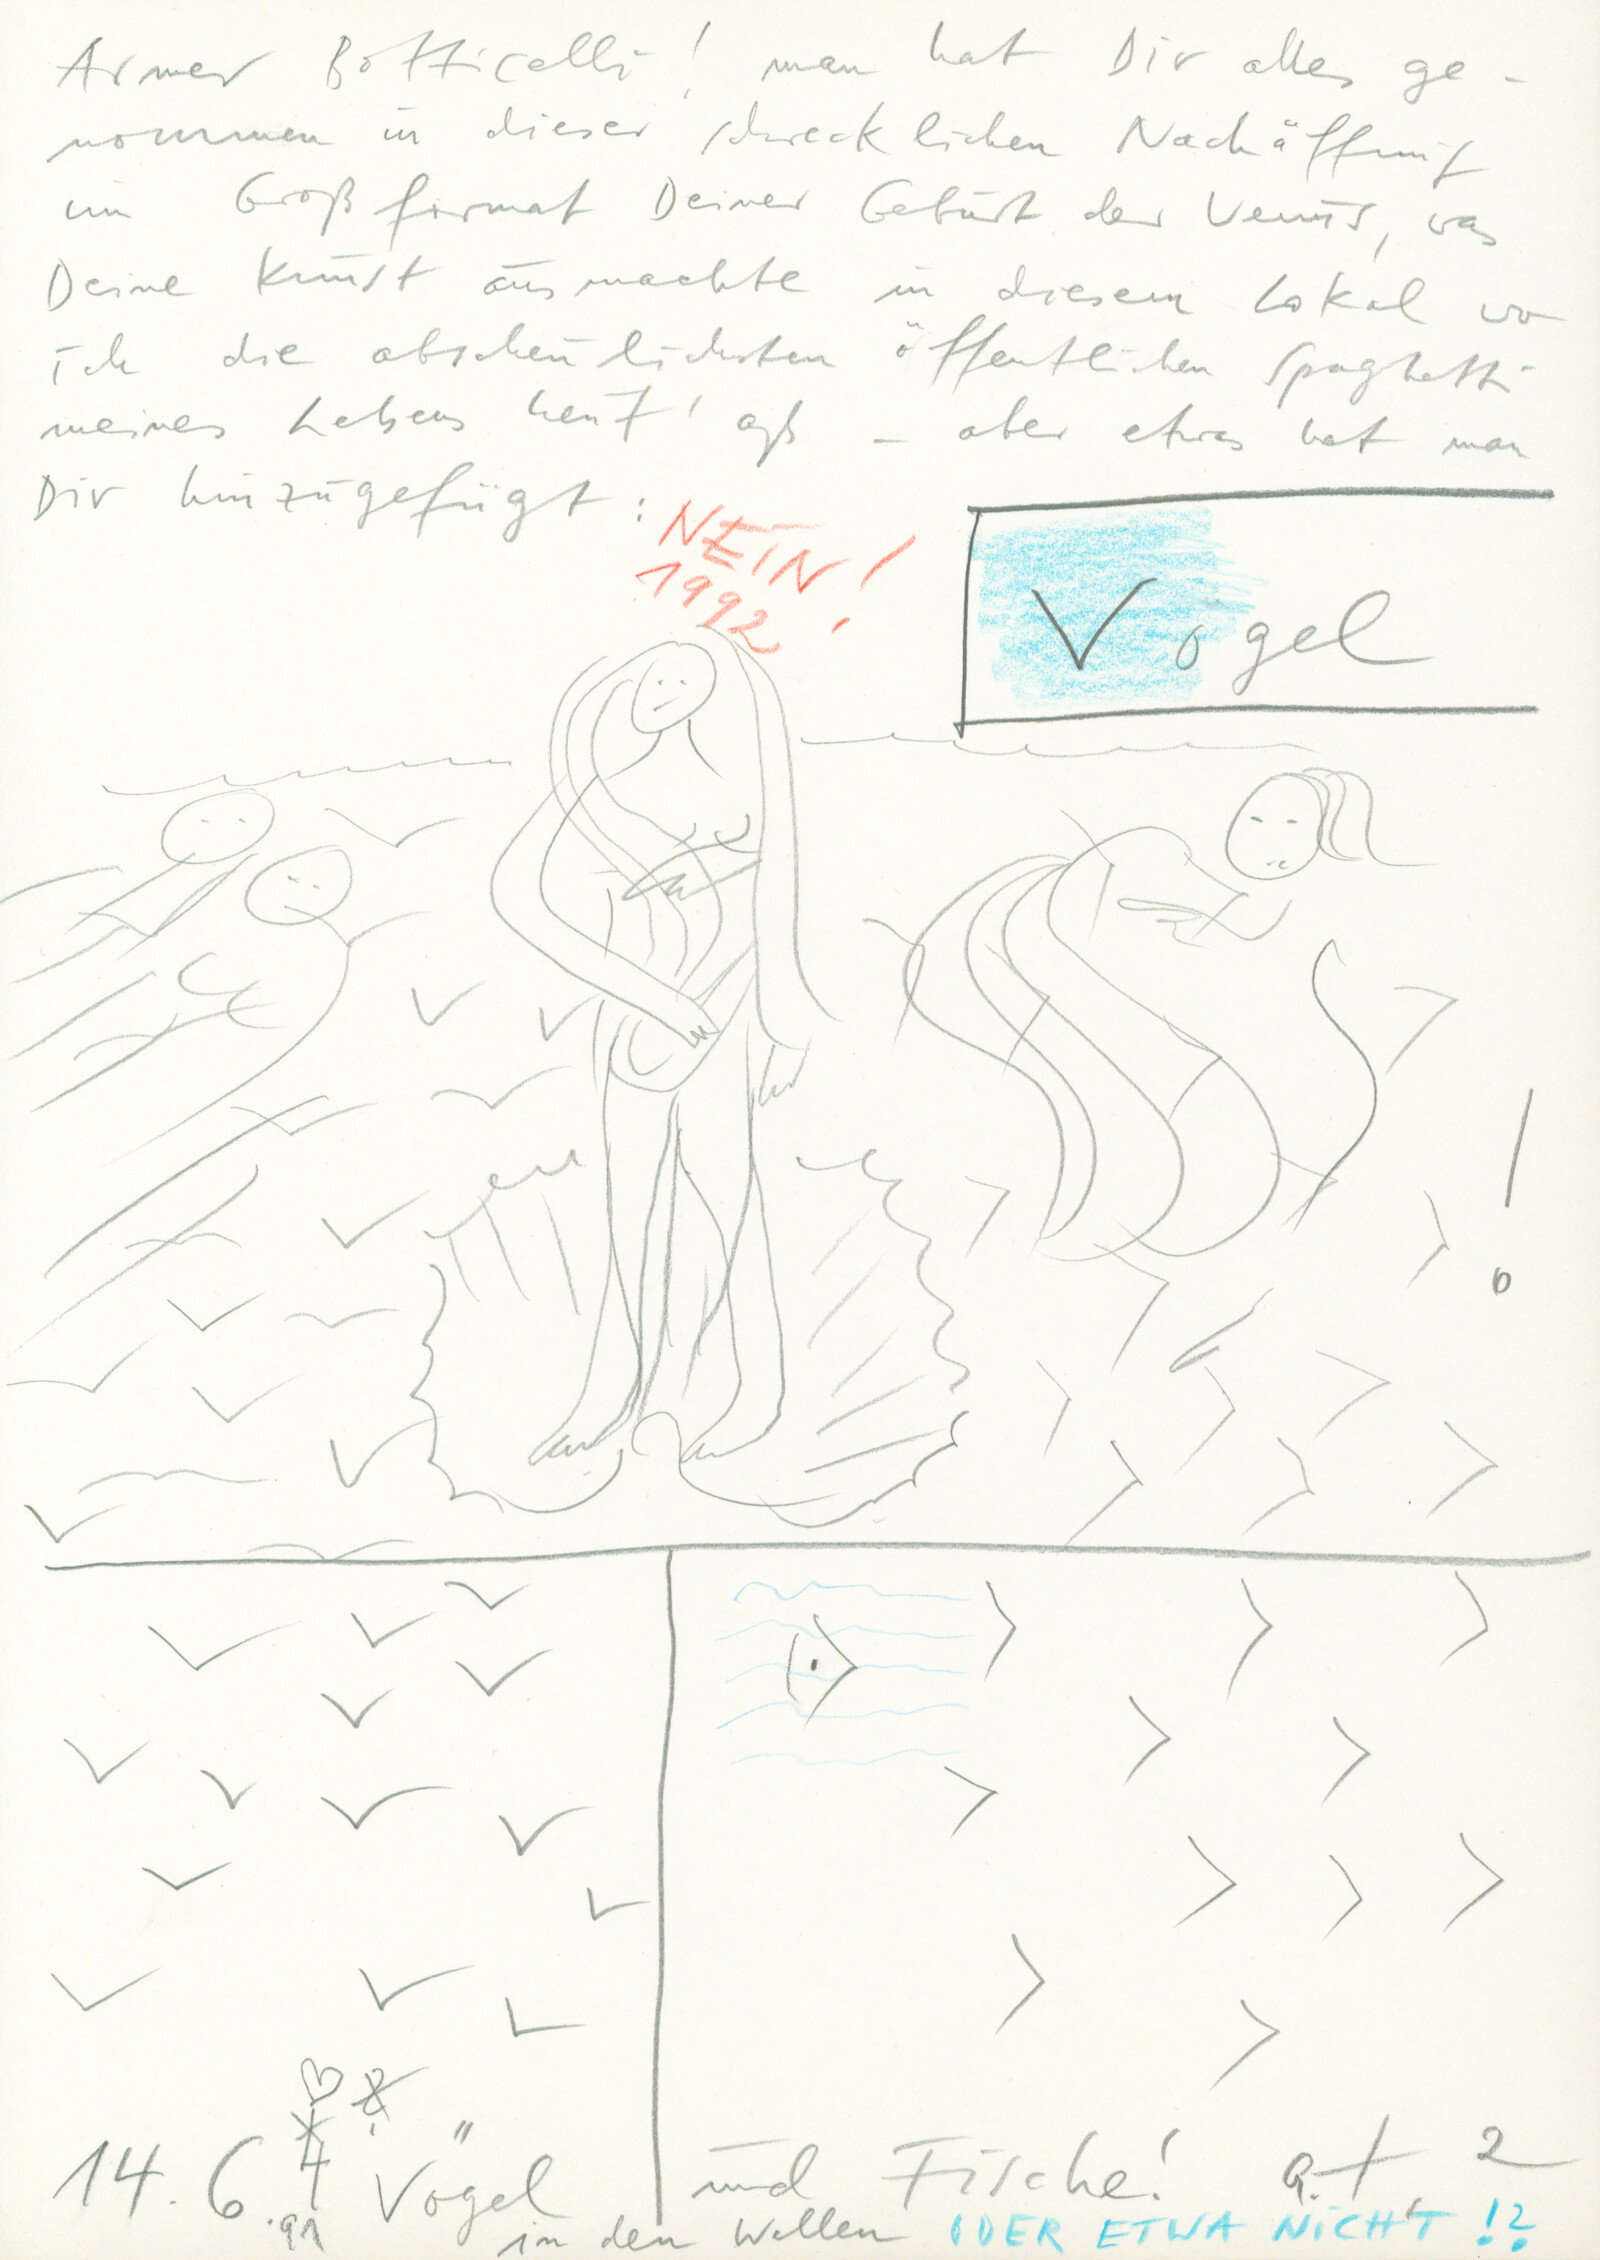 Armer Botticelli! man hat Dir alles ge-
nommen in dieser schrecklichen Nachäffung
im Großformat Deiner Geburt der Venus, was
Deine Kunst ausmachte in diesem Lokal wo
ich die abscheulichsten öffentlichen Spaghetti
meines Lebens heut' aß – aber etwas hat man
Dir hinzugefügt:
NEIN!
1992
Vogel
!
14.6.91 Vögel und Fische!
in den Wellen ODER ETWA NICHT!?